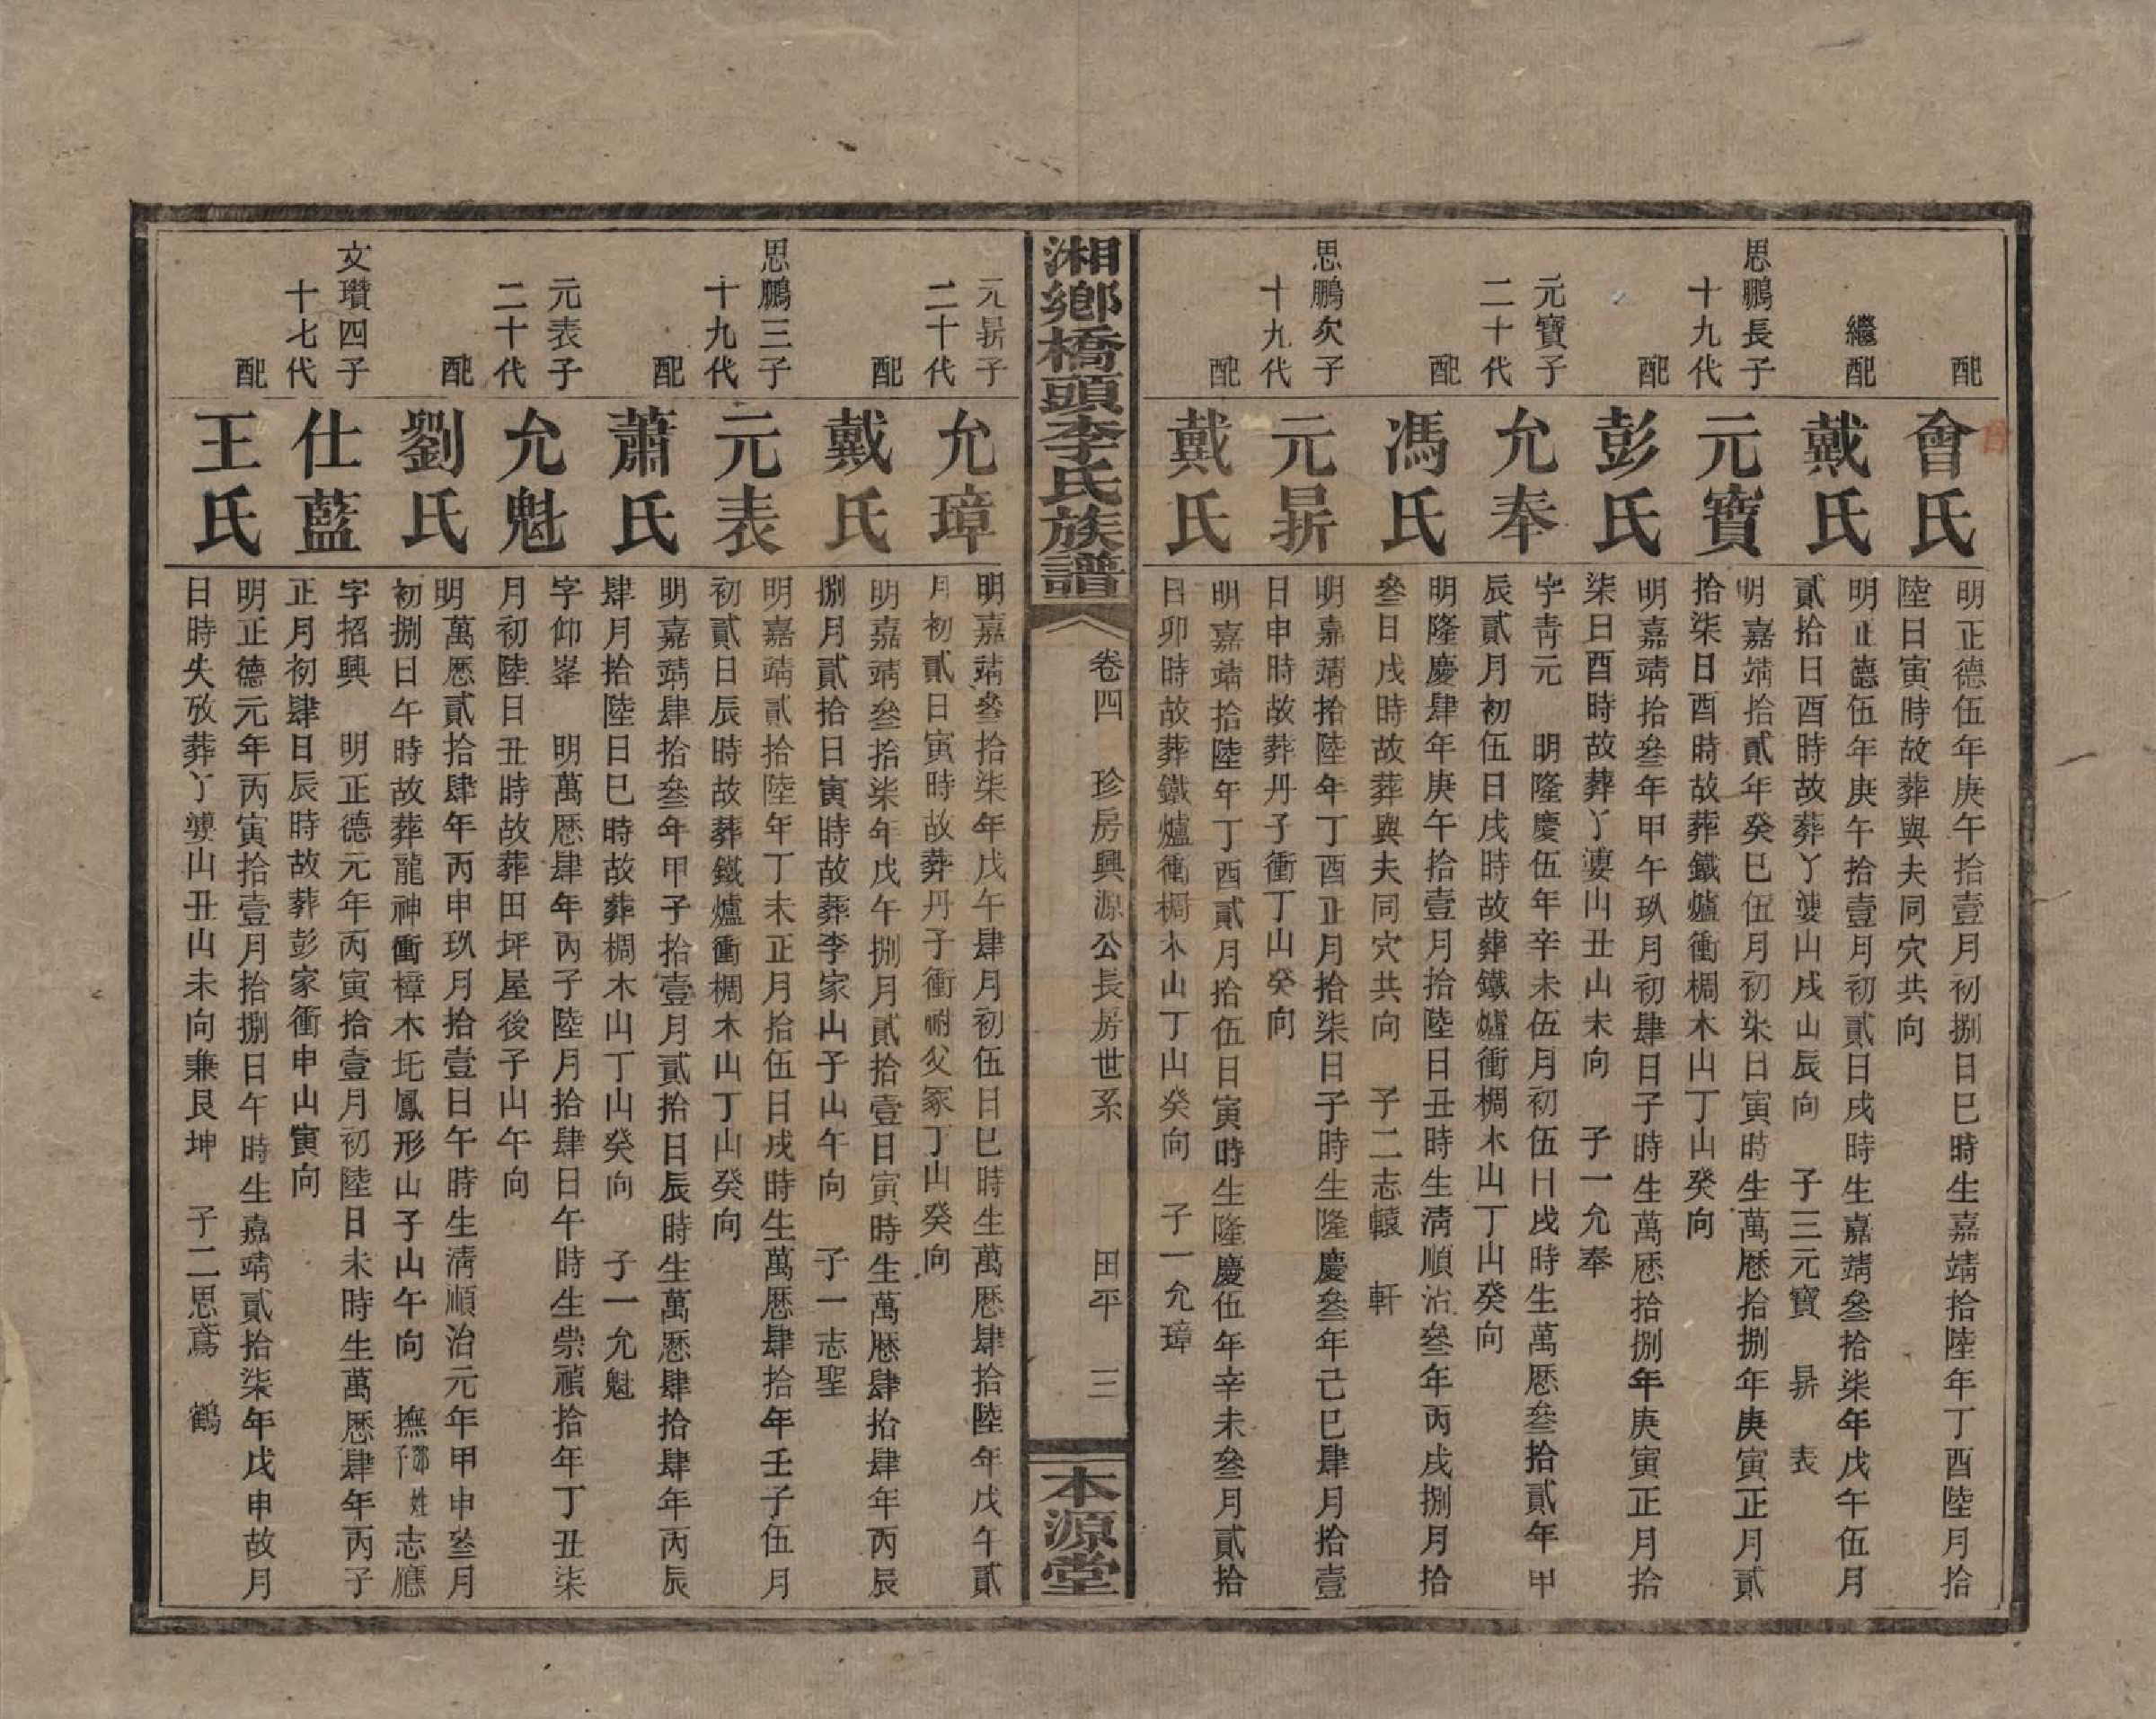 配
會氏
明正德伍年庚午拾壹月初捌日巳時生嘉靖拾陸年丁酉陸月拾
陸日寅時故葬與夫同穴共向
繼配
戴氏
明正德伍年庚午拾壹月初貳日戌時生嘉靖叄拾柒年戊午伍月
貳拾日酉時故葬丫婆山戌山辰向 子三元寶 昇 表
思鵬長子
十九代
元寶
明嘉靖拾貳年癸巳伍月初柒日寅時生萬厯拾捌年庚寅正月貳
拾柒日酉時故葬鐵爐衝椆木山丁山癸向
配
彭氏
明嘉靖拾叄年甲午玖月初肆日子時生萬厯拾捌年庚寅正月拾
柒日酉時故葬丫婆山丑山未向 子一允奉
元寶子
二十代
允奉
字青元 明隆慶伍年辛未伍月初伍日戌時生萬厯叄拾貳年甲
辰貳月初伍日戌時故葬鐵爐衝椆木山丁山癸向
配
馮氏
明隆慶肆年庚午拾壹月拾陸日丑時生淸順治叄年丙戌捌月拾
叄日戌時故葬與夫同穴共向 子二志轅 軒
思鵬次子
十九代
元昇
明嘉靖拾陸年丁酉正月拾柒日子時生隆慶叄年己巳肆月拾壹
日申時故葬丹子衝丁山癸向
配
戴氏
明嘉靖拾陸年丁酉貳月拾伍日寅時生隆慶伍年辛未叄月貳拾
日卯時故葬鐵爐衝椆木山丁山癸向 子一允璋
湘鄉橋頭李氏族譜
卷四 珍房興源公長房世系 田平 三
本源堂
元昇子
二十代
允璋
明嘉靖叄拾柒年戊午肆月初伍日巳時生萬厯肆拾陸年戊午貳
月初貳日寅時故葬丹子衝祔父冢丁山癸向
配
戴氏
明嘉靖叄拾柒年戊午捌月貳拾壹日寅時生萬厯肆拾肆年丙辰
捌月貳拾日寅時故葬李家山子山午向 子一志聖
思鵬三子
十九代
元表
明嘉靖貳拾陸年丁未正月拾伍日戌時生萬厯肆拾年壬子伍月
初貳日辰時故葬鐵爐衝椆木山丁山癸向
配
蕭氏
明嘉靖肆拾叄年甲子拾壹月貳拾日辰時生萬厯肆拾肆年丙辰
肆月拾陸日巳時故葬椆木山丁山癸向 子一允魁
元表子
二十代
允魁
字仰峯 明萬厯肆年丙子陸月拾肆日午時生崇禎拾年丁丑柒
月初陸日丑時故葬田坪屋後子山午向
配
劉氏
明萬厯貳拾肆年丙申玖月拾壹日午時生淸順治元年甲申叄月
初捌日午時故葬龍神衝樟木坵鳳形山子山午向 撫鄒姓子志應
文瓚四子
十七代
仕藍
字招興 明正德元年丙寅拾壹月初陸日未時生萬厯肆年丙子
正月初肆日辰時故葬彭家衝申山寅向
配
王氏
明正德元年丙寅拾壹月拾捌日午時生嘉靖貳拾柒年戊申故月
日時失攷葬丫婆山丑山未向兼艮坤 子二思鳶 鶴